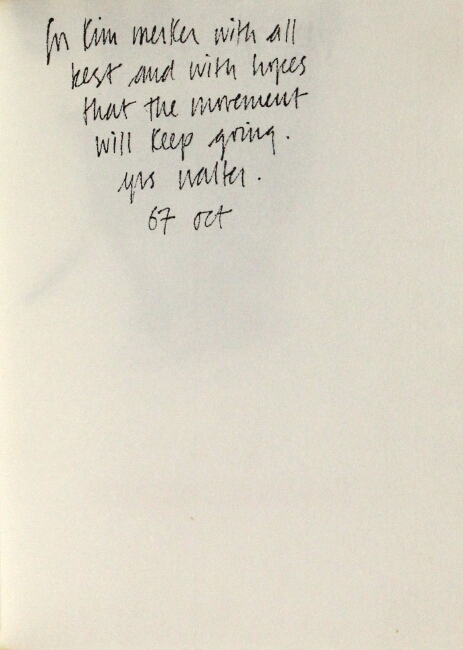 for Kim merker with all
best and with hopes
that the movement
will keep going.
yrs walter.
67 oct